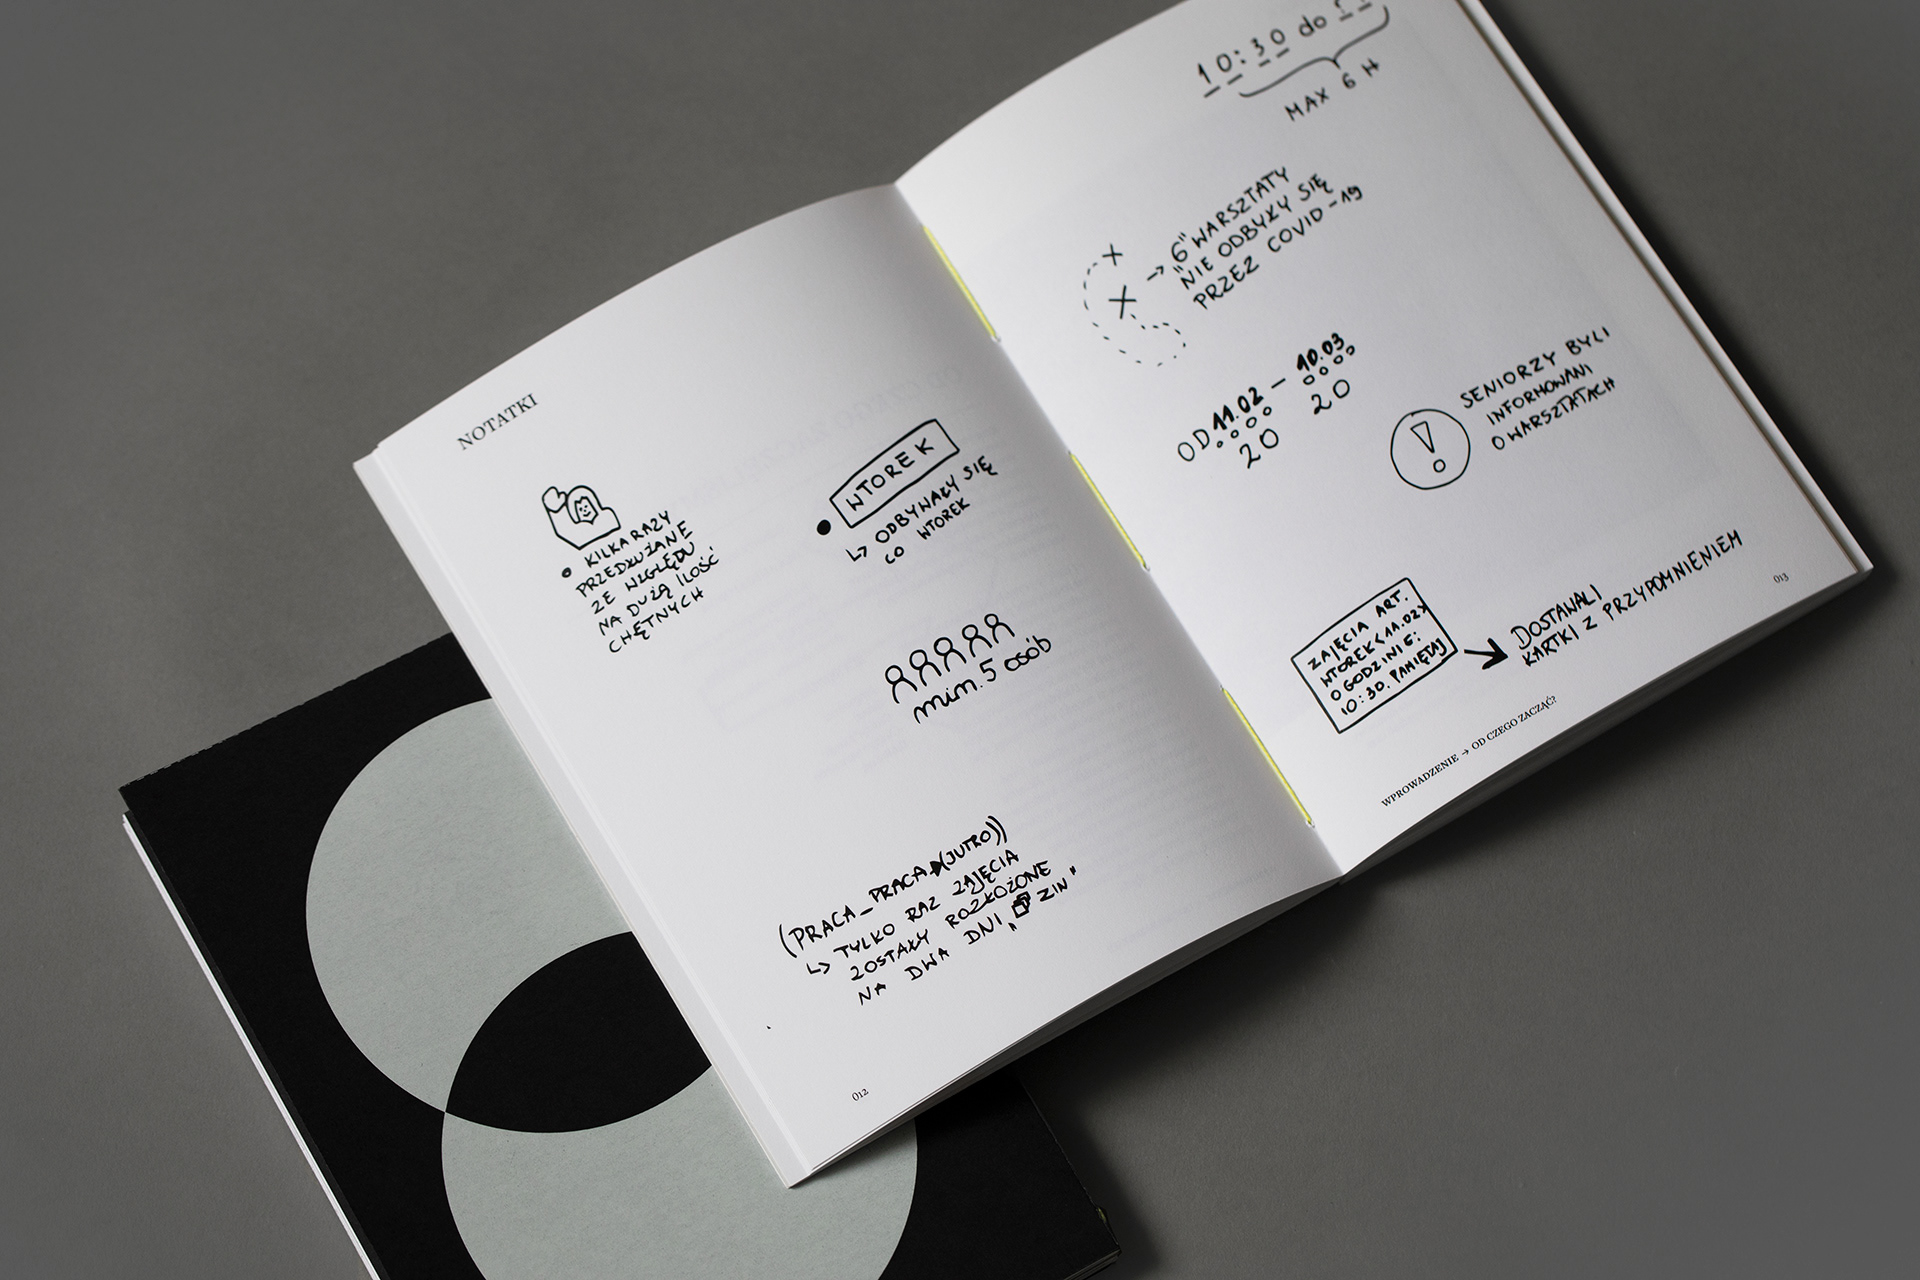 NOTATKI
• KILKA RAZY
PRZEDŁUŻANE
ZE WZGLĘDU
NA DUŻĄ ILOŚĆ
CHĘTNYCH
• WTOREK
↳ ODBYWAŁY SIĘ
CO WTOREK
min. 5 osób
(PRACA_PRACA (JUTRO))
↳ TYLKO RAZ ZAJĘCIA
ZOSTAŁY ROZŁOŻONE
NA DWA DNI „ZIN"
012
10:30 do
MAX 6 H
→ 6 WARSZTATY
NIE ODBYŁY SIĘ
PRZEZ COVID-19
OD 11.02 — 10.03
20 20
! SENIORZY BYLI
INFORMOWANI
O WARSZTATACH
ZAJĘCIA ART.
WTOREK <11.02>
O GODZINIE:
10:30. PAMIĘTAJ
→ DOSTAWALI
KARTKI Z PRZYPOMNIENIEM
013
WPROWADZENIE → OD CZEGO ZACZĄĆ?